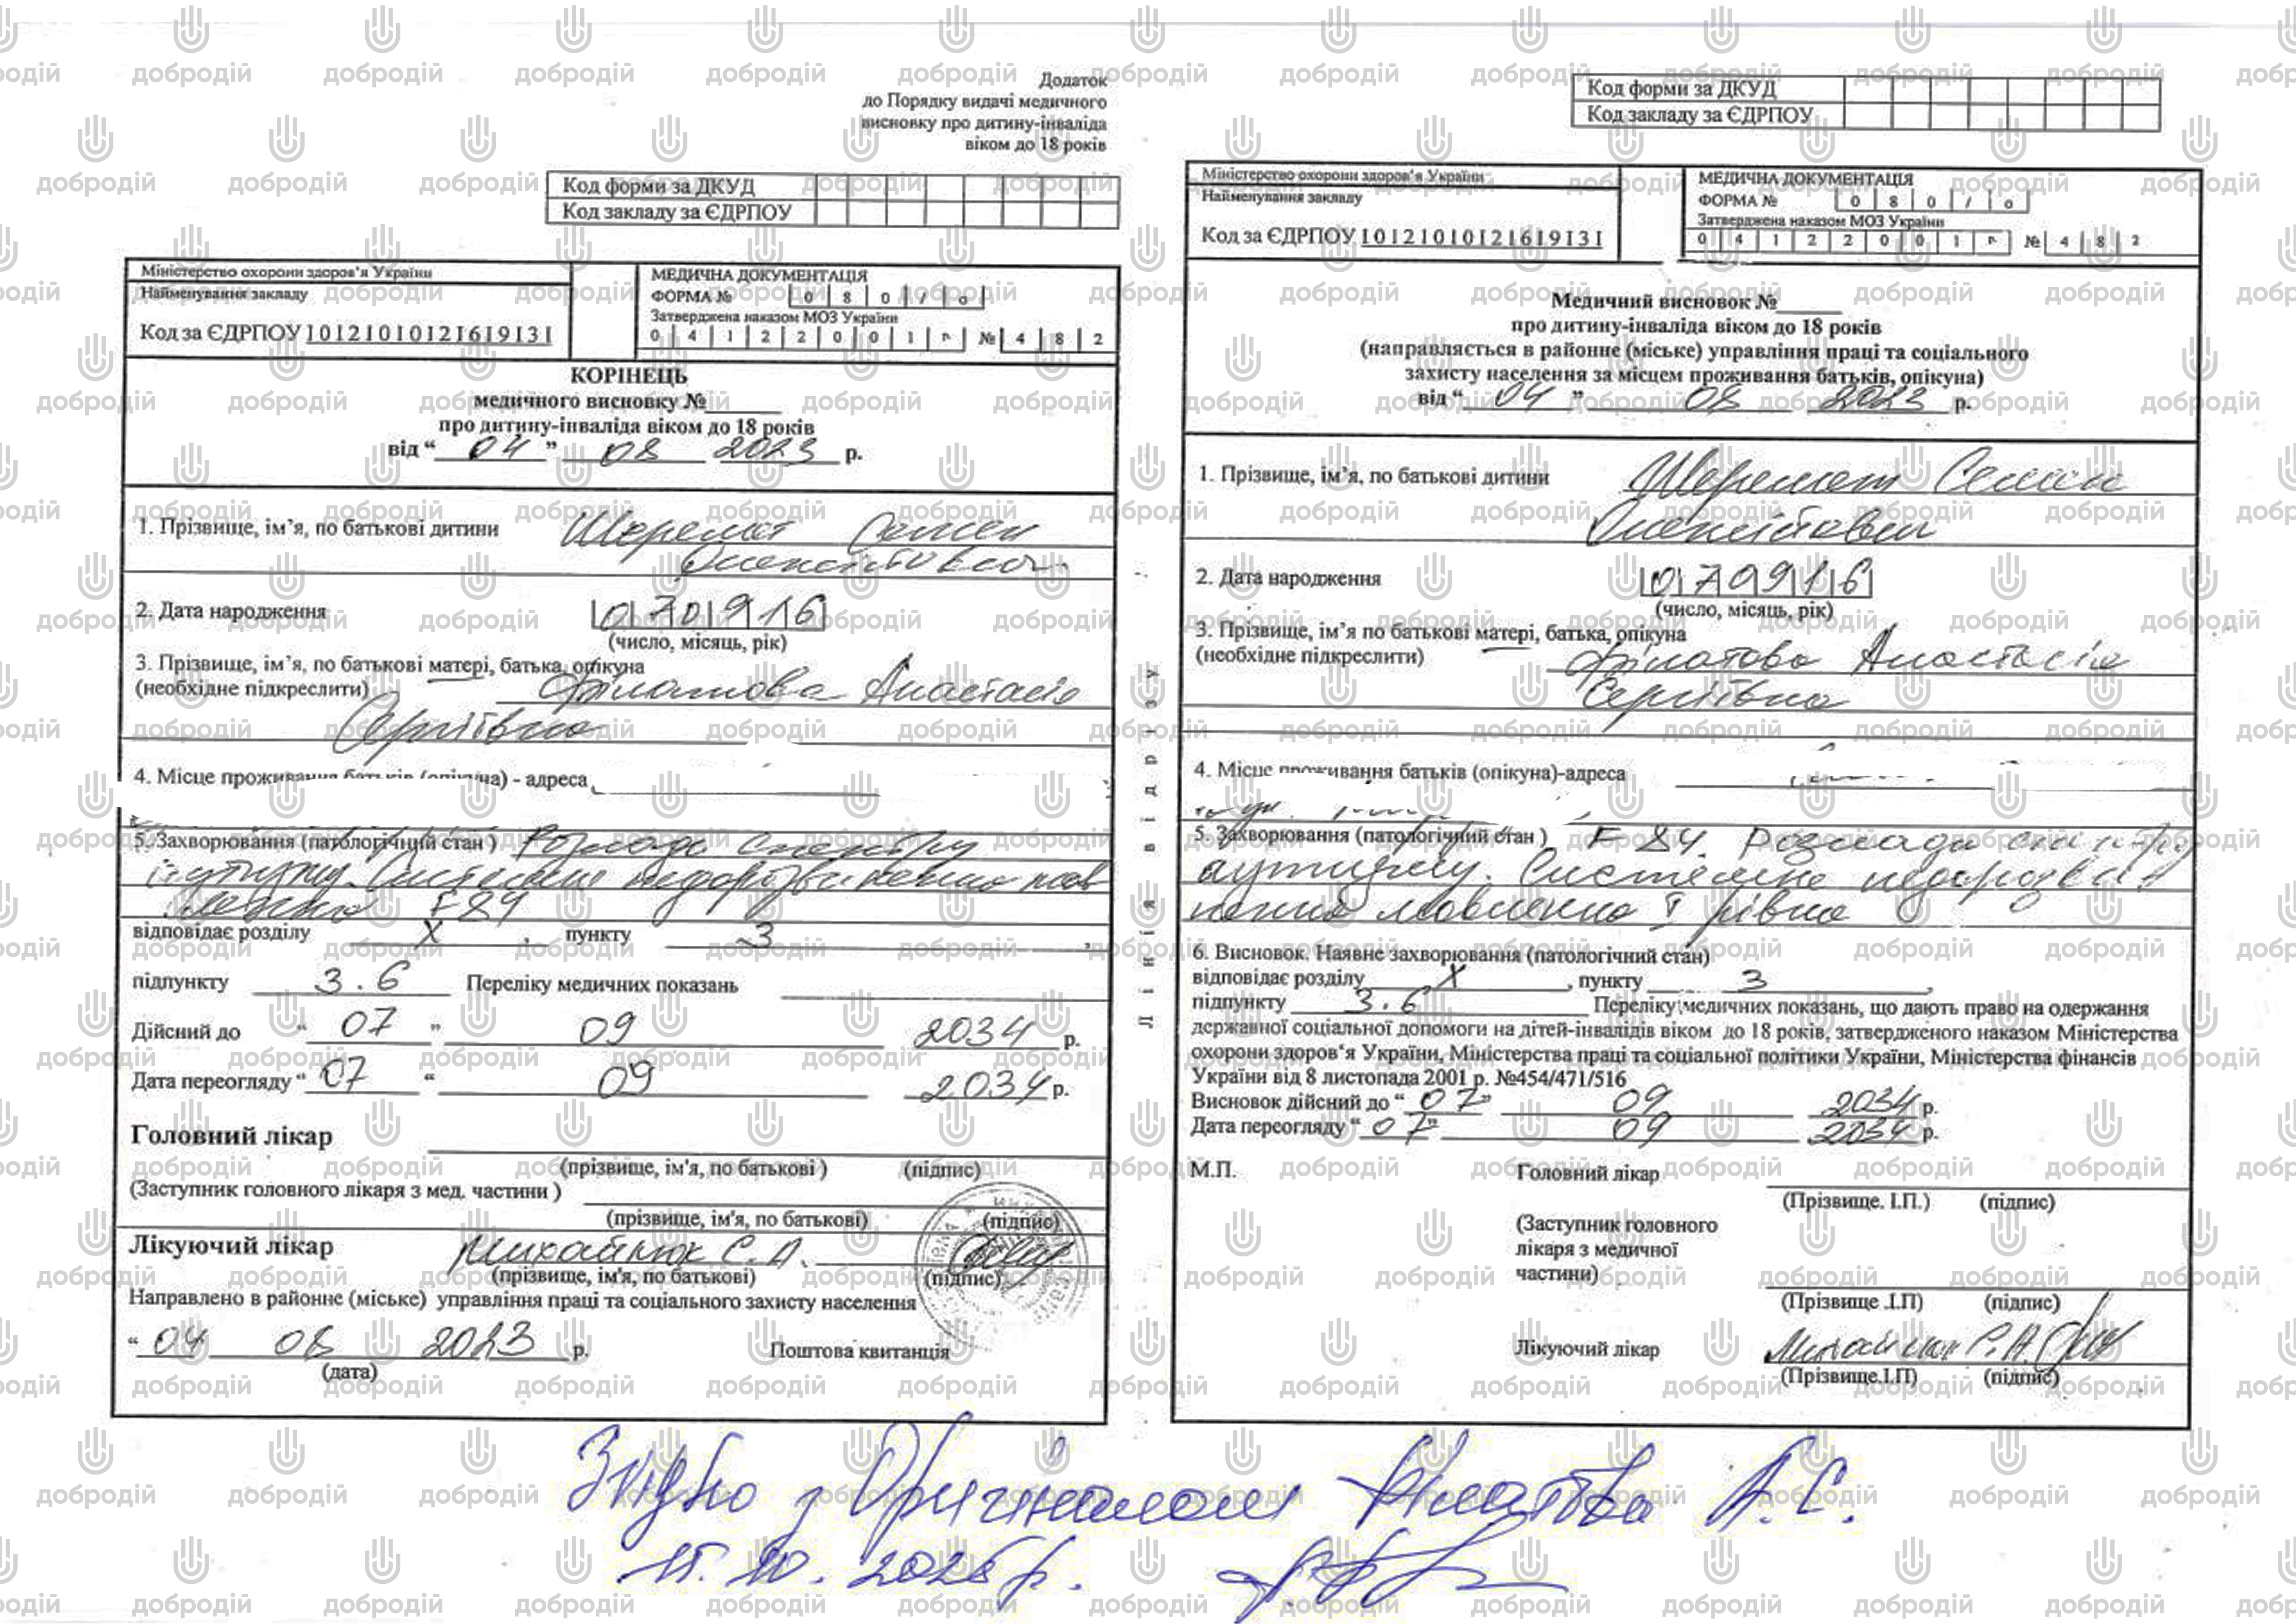 Додаток
до Порядку видачі медичного
висновку про дитину-інваліда
віком до 18 років
Код форми за ДКУД
Код закладу за ЄДРПОУ
Міністерство охорони здоров'я України
Найменування закладу
Код за ЄДРПОУ 1012101012161913 1
МЕДИЧНА ДОКУМЕНТАЦІЯ
ФОРМА № 0 8 0 / о
Затверджена наказом МОЗ України
0 4 1 2 2 0 0 1 р № 4 8 2
КОРІНЕЦЬ
медичного висновку №
про дитину-інваліда віком до 18 років
від “ 04 ” 08 2023 р.
1. Прізвище, ім’я, по батькові дитини Шеремет Семен
Олексійович
2. Дата народження 070916
(число, місяць, рік)
3. Прізвище, ім’я, по батькові матері, батька, опікуна
(необхідне підкреслити) Філатова Анастасія
Сергіївна
4. Місце проживання батьків (опікуна) - адреса
5. Захворювання (патологічний стан ) Розлади спектру
аутизму. Системне недорозвинення мов
лення F 84
відповідає розділу X , пункту 3
підпункту 3.6 Переліку медичних показань
Дійсний до “ 07 ” 09 2034 р.
Дата переогляду “ 07 “ 09 2034 р.
Головний лікар
(прізвище, ім'я, по батькові ) (підпис)
(Заступник головного лікаря з мед. частини )
(прізвище, ім'я, по батькові) (підпис)
Лікуючий лікар Михайлюк С.А.
(прізвище, ім'я, по батькові) (підпис)
Направлено в районне (міське) управління праці та соціального захисту населення
“ 04 08 2023 р. Поштова квитанція
(дата)
Лінія відрізу
Код форми за ДКУД
Код закладу за ЄДРПОУ
Міністерство охорони здоров’я України
Найменування закладу
Код за ЄДРПОУ 1012101012161913 1
МЕДИЧНА ДОКУМЕНТАЦІЯ
ФОРМА № 0 8 0 / о
Затверджена наказом МОЗ України
0 4 1 2 2 0 0 1 р № 4 8 2
Медичний висновок №
про дитину-інваліда віком до 18 років
(направляється в районне (міське) управління праці та соціального
захисту населення за місцем проживання батьків, опікуна)
від “ 04 ” 08 2023 р.
1. Прізвище, ім’я, по батькові дитини Шеремет Семен
Олексійович
2. Дата народження 070916
(число, місяць, рік)
3. Прізвище, ім’я по батькові матері, батька, опікуна
(необхідне підкреслити) Філатова Анастасія
Сергіївна
4. Місце проживання батьків (опікуна)-адреса
5. Захворювання (патологічний стан ) F 84. Розлади спектру
аутизму. Системне недорозви
нення мовлення I рівня
6. Висновок. Наявне захворювання (патологічний стан)
відповідає розділу X , пункту 3 ,
підпункту 3.6 Переліку медичних показань, що дають право на одержання
державної соціальної допомоги на дітей-інвалідів віком до 18 років, затвердженого наказом Міністерства
охорони здоров‘я України, Міністерства праці та соціальної політики України, Міністерства фінансів
України від 8 листопада 2001 р. №454/471/516
Висновок дійсний до “ 07 ” 09 2034 р.
Дата переогляду “ 07 ” 09 2034 р.
М.П. Головний лікар
(Прізвище. І.П.) (підпис)
(Заступник головного
лікаря з медичної
частини)
(Прізвище .І.П) (підпис)
Лікуючий лікар Михайлюк С.А.
(Прізвище.І.П) (підпис)
Згідно з Оригіналом Філатова А.С.
15.10.2025 р.
добродій